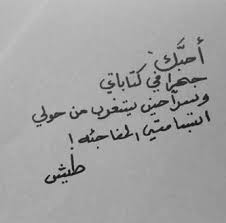 أحبّك
جهرا في كتاباتي
وسرا حين يستغرب من حولي
ابتسامتي المفاجئه !
طيش